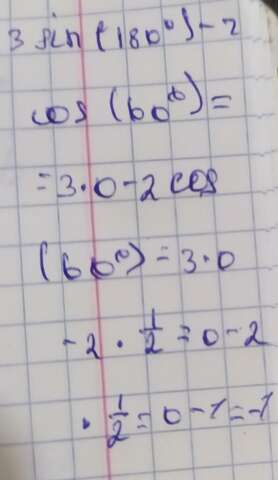 3 sin(180°) - 2
cos (60°) =
= 3·0 - 2 cos
(60°) = 3·0
- 2 · 1/2 = 0 - 2
· 1/2 = 0 - 1 = -1